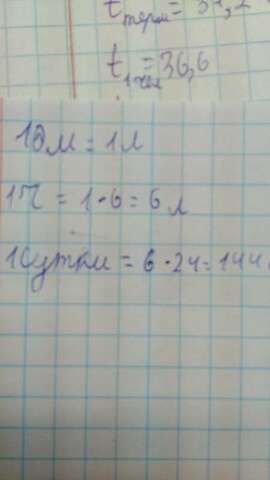 tтерм = 37,2
t1 чел = 36,6
10м = 1л
1ч = 1·6 = 6л
1сутки = 6·24 = 144